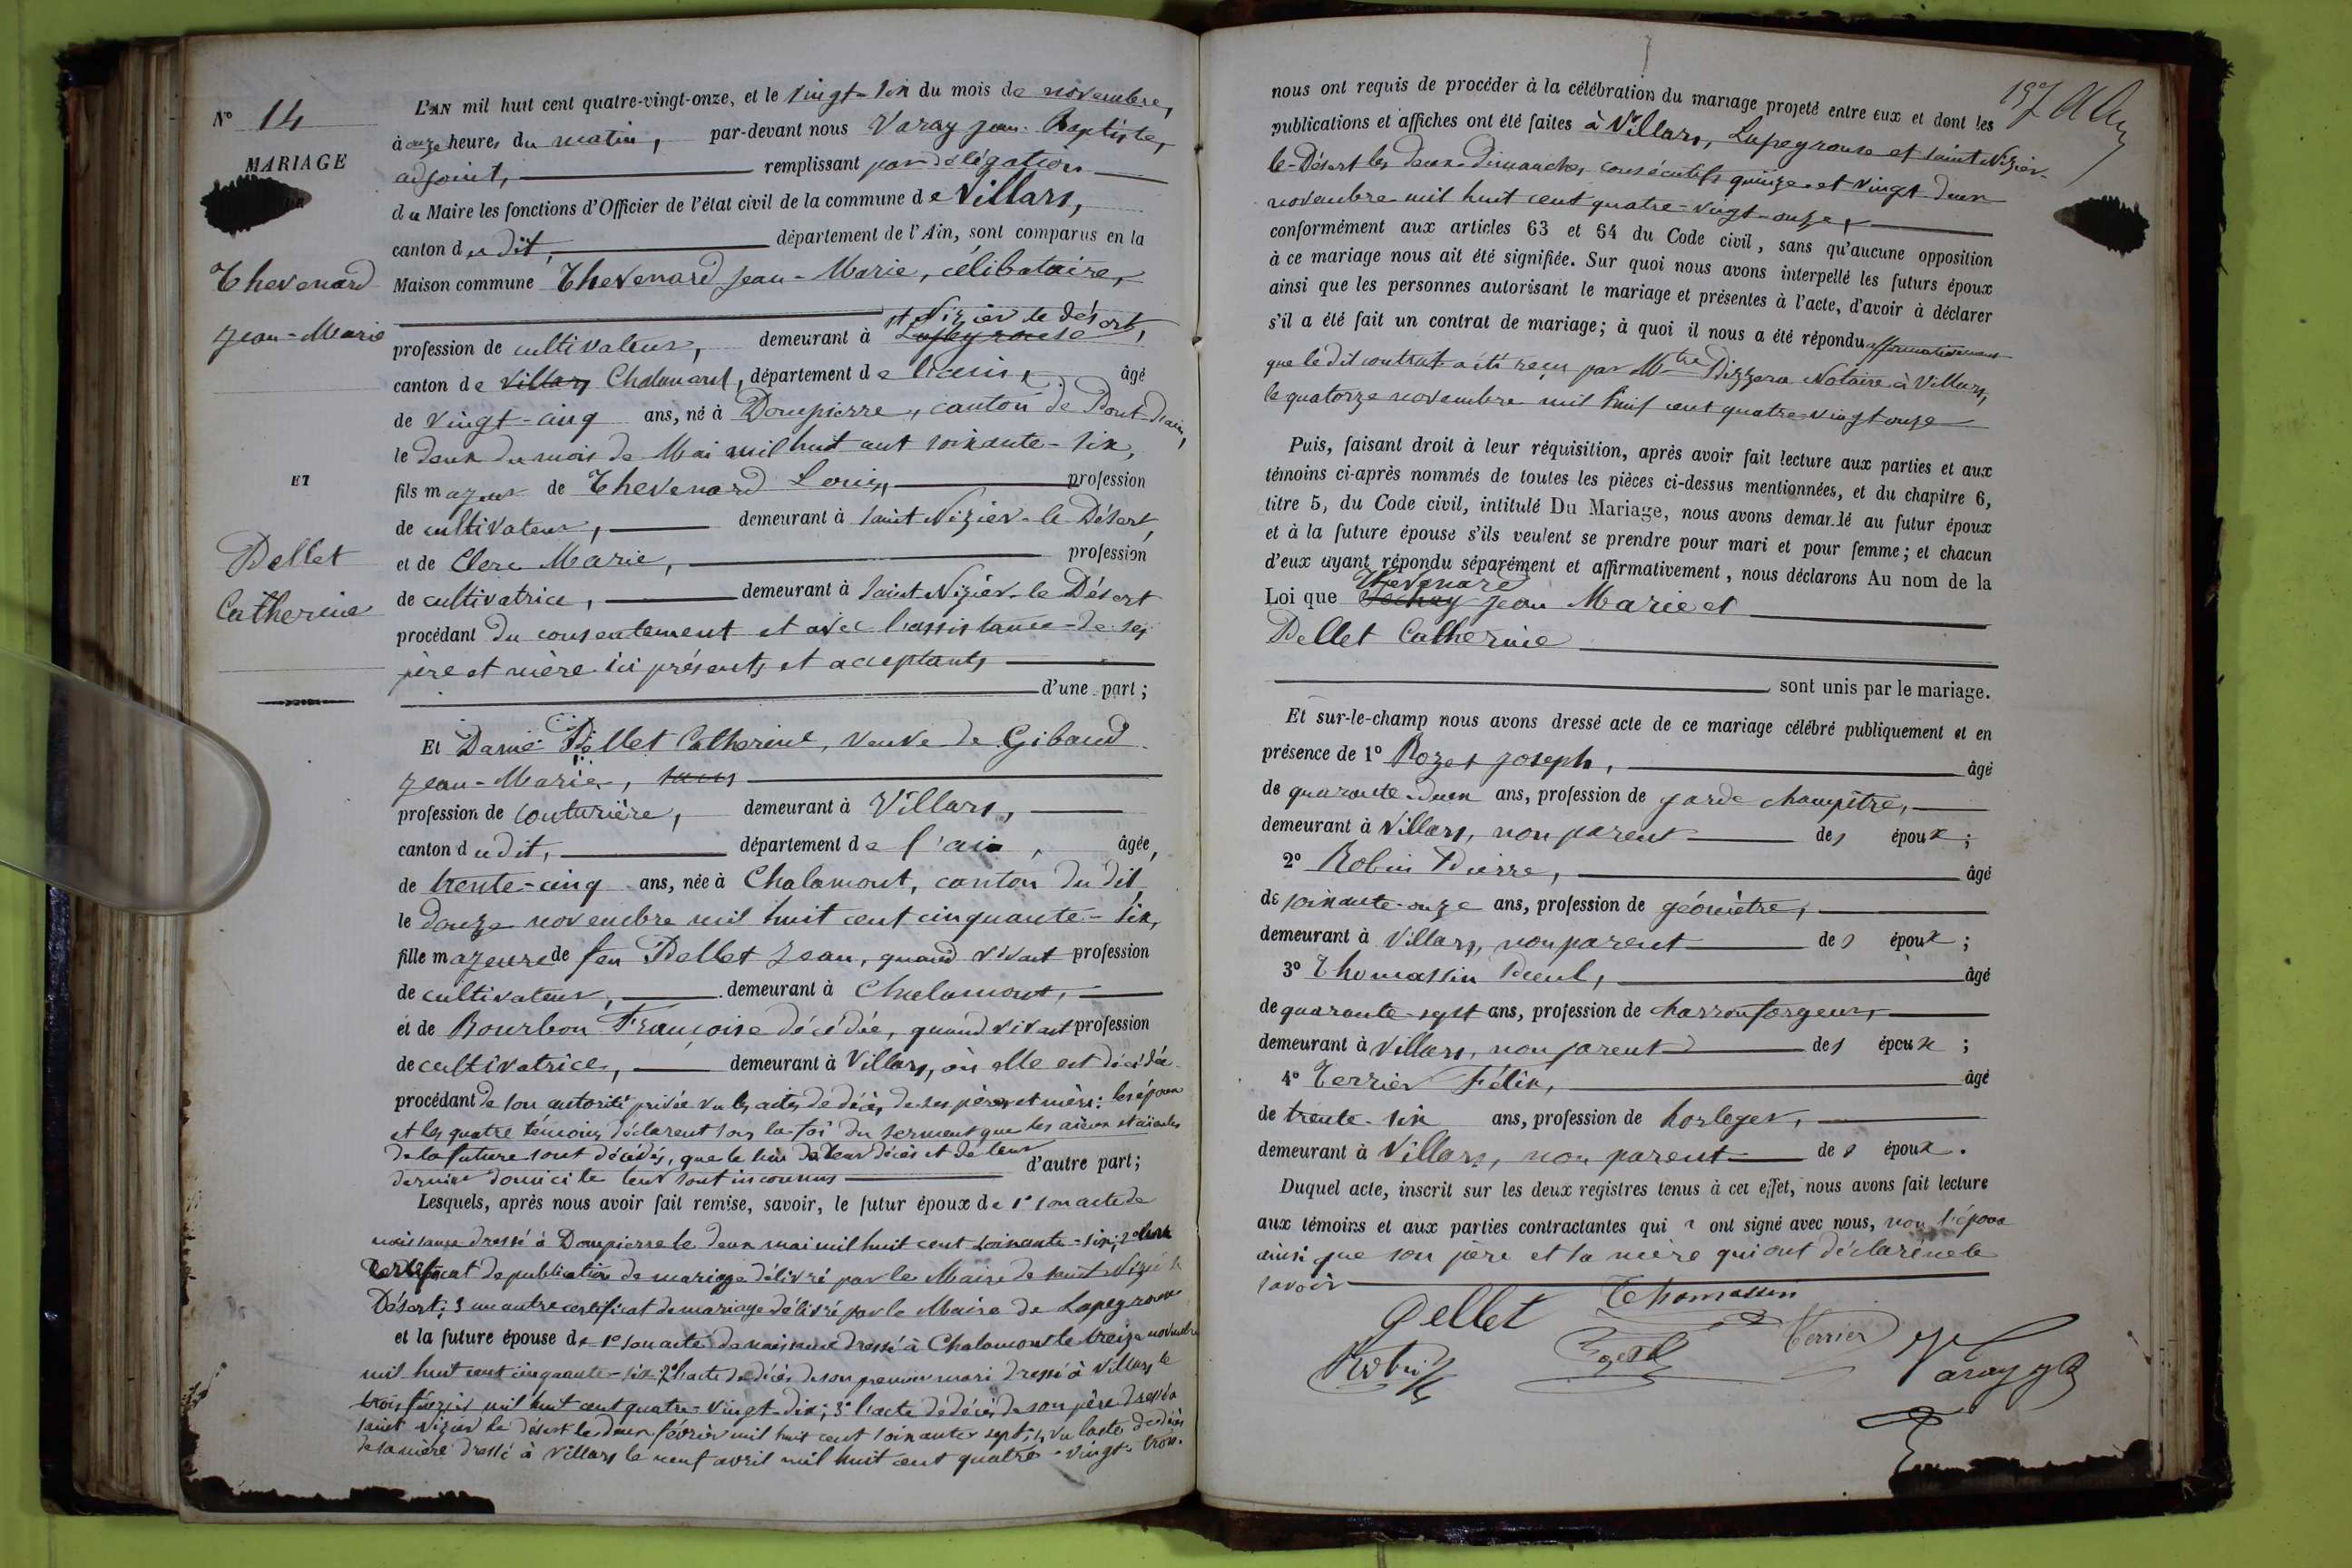 N° 14
MARIAGE
Thevenard
Jean-Marie
ET
Pellet
Catherine
L'AN mil huit cent quatre-vingt-onze, et le vingt-six du mois de novembre,
à onze heures du matin, par-devant nous Varay Jean-Baptiste,
adjoint, remplissant par délégation
du Maire les fonctions d'Officier de l'état civil de la commune de Villars,
canton du dit, département de l'Ain, sont comparus en la
Maison commune Thevenard Jean-Marie, célibataire,
st Nizier le désert,
profession de cultivateur, demeurant à Lapeyrouse
canton de Villars Chalamont, département de l'ain, âgé
de vingt-cinq ans, né à Dompierre, canton de Pont-d'ain,
le deux du mois de Mai mil huit cent soixante-six,
fils majeur de Thevenard Louis, profession
de cultivateur, demeurant à Saint Nizier-le Désert,
et de Clerc Marie, profession
de cultivatrice, demeurant à Saint Nizier-le Désert
procédant du consentement et avec l'assistance de ses
père et mère ici présents et acceptants
d'une part;
Et Dame Pellet Catherine, veuve de Gibaud
Jean-Marie, sans
profession de couturière, demeurant à Villars,
canton du dit, département de l'ain, âgée,
de trente-cinq ans, née à Chalamont, canton du dit,
le douze novembre mil huit cent cinquante-six,
fille majeure de feu Pellet Jean, quand vivait profession
de cultivateur, demeurant à Chalamont,
et de Bourbon Françoise décédée, quand vivait profession
de cultivatrice, demeurant à Villars, où elle est décédée
procédant de son autorité privée vu les actes de décès de ses père et mère: les époux
et les quatre témoins déclarent sous la foi du serment que les aïeux et aïeules
de la future sont décédés, que le lieu de leur décès et de leur
dernier domicile leur sont inconnus d'autre part;
Lesquels, après nous avoir fait remise, savoir, le futur époux de 1° son acte de
naissance dressé à Dompierre le deux mai mil huit cent soixante-six; 2°
Certificat de publication de mariage délivré par le Maire de Saint Nizier le
Désert; 3 un autre certificat de mariage délivré par le Maire de Lapeyrouse
et la future épouse de 1° son acte de naissance dressé à Chalamont le treize novembre
mil huit cent cinquante-six; 2° l'acte de décès de son premier mari dressé à Villars le
trois février mil huit cent quatre-vingt-dix; 3° l'acte de décès de son père dressé à
saint Nizier le désert le deux février mil huit cent soixante sept; 4 vu l'acte de décès
de sa mère dressé à Villars le neuf avril mil huit cent quatre-vingt-trois.
nous ont requis de procéder à la célébration du mariage projeté entre eux et dont les
publications et affiches ont été faites à Villars, Lapeyrouse et Saint Nizier-
le-Désert les deux Dimanches consécutifs quinze et vingt deux
novembre mil huit cent quatre-vingt-onze,
conformément aux articles 63 et 64 du Code civil, sans qu'aucune opposition
à ce mariage nous ait été signifiée. Sur quoi nous avons interpellé les futurs époux
ainsi que les personnes autorisant le mariage et présentes à l'acte, d'avoir à déclarer
s'il a été fait un contrat de mariage; à quoi il nous a été répondu affirmativement
que le dit contrat a été reçu par Mtre Dizzera Notaire à Villars,
le quatorze novembre mil huit cent quatre-vingt onze
Puis, faisant droit à leur réquisition, après avoir fait lecture aux parties et aux
témoins ci-après nommés de toutes les pièces ci-dessus mentionnées, et du chapitre 6,
titre 5, du Code civil, intitulé Du Mariage, nous avons demandé au futur époux
et à la future épouse s'ils veulent se prendre pour mari et pour femme; et chacun
d'eux ayant répondu séparément et affirmativement, nous déclarons Au nom de la
Thevenard
Loi que Jean Marie et
Pellet Catherine
sont unis par le mariage.
Et sur-le-champ nous avons dressé acte de ce mariage célébré publiquement et en
présence de 1° Rozet Joseph, âgé
de quarante-deux ans, profession de garde champêtre,
demeurant à Villars, non parent des époux;
2° Robin Pierre, âgé
de soixante-onze ans, profession de géomètre,
demeurant à Villars, non parent des époux;
3° Thomassin Paul, âgé
de quarante-sept ans, profession de charron forgeur,
demeurant à Villars, non parent des époux;
4° Terrier Félix, âgé
de trente-six ans, profession de horloger,
demeurant à Villars, non parent des époux.
Duquel acte, inscrit sur les deux registres tenus à cet effet, nous avons fait lecture
aux témoins et aux parties contractantes qui ont signé avec nous, non l'époux
ainsi que son père et sa mère qui ont déclaré ne le
savoir
Pellet Thomassin
Robin Rozet Terrier Varay